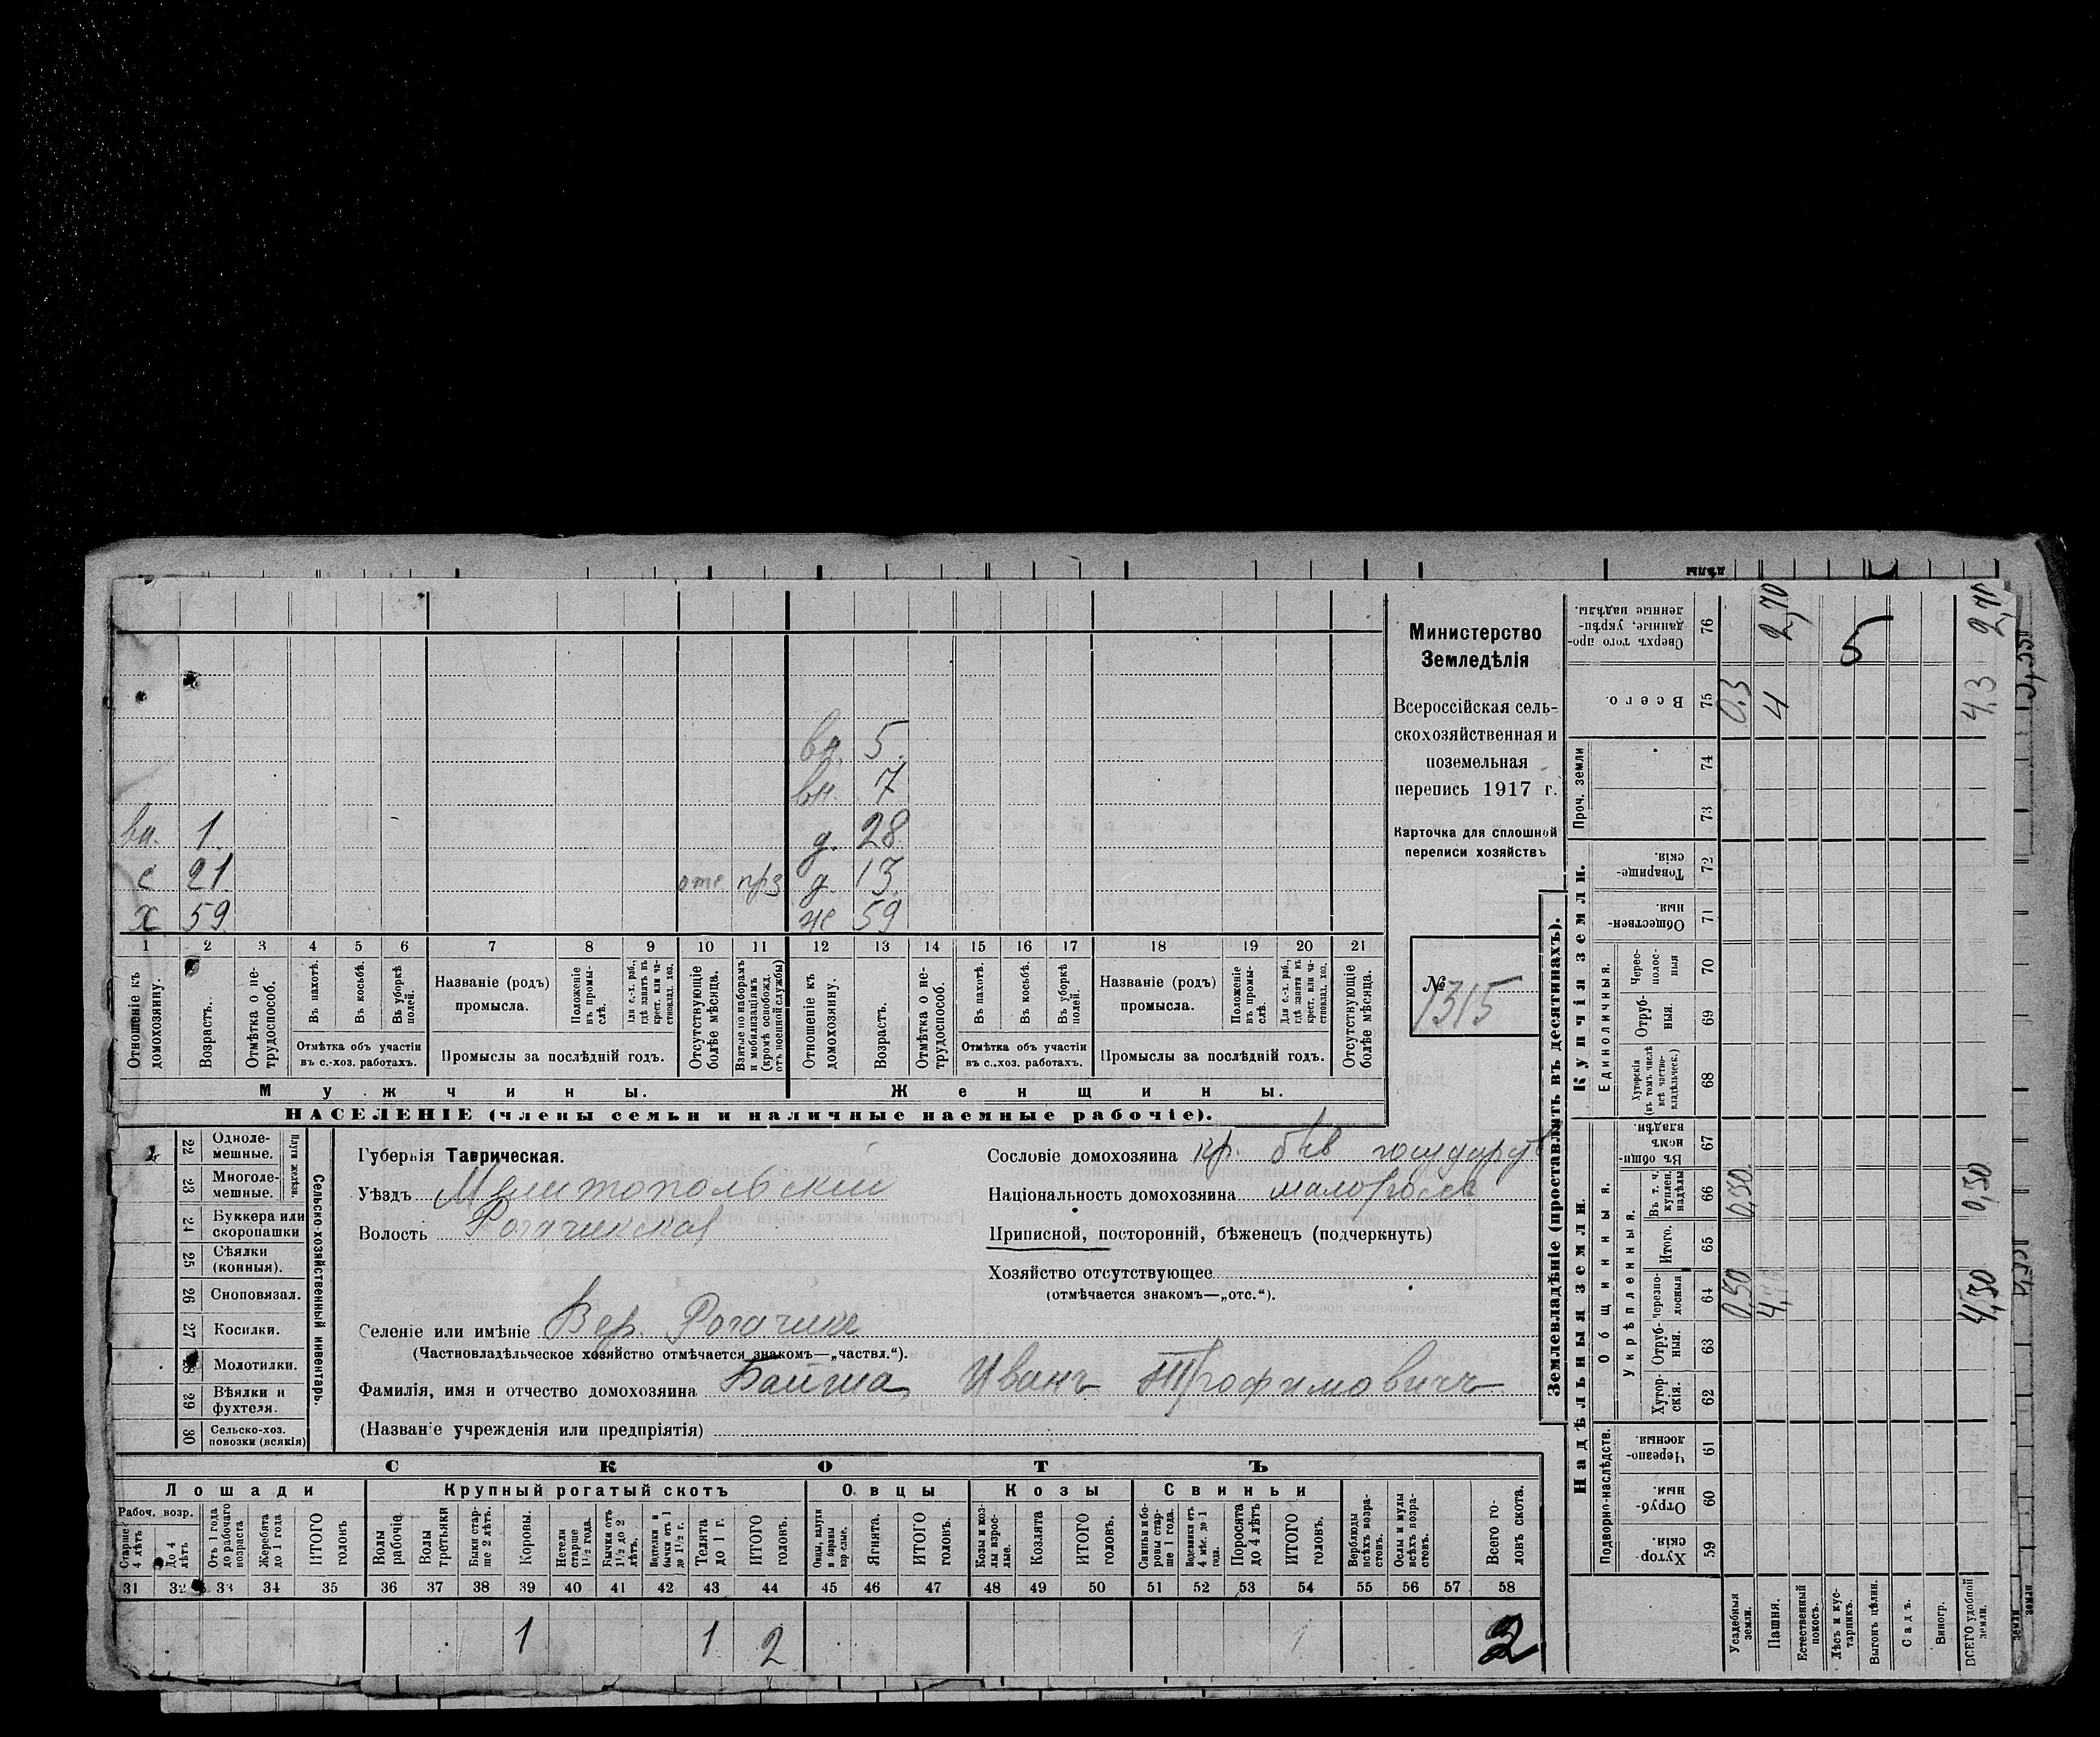 Министерство
Земледѣлія
Всероссійская сель-
скохозяйственная и
поземельная
перепись 1917 г.
Карточка для сплошной
переписи хозяйствъ
№
1315
вн. 5
вн. 7
вн. 1 д. 28
с 21 отс д 13
х 59 же 59
1 2 3 4 5 6 7 8 9 10 11 12 13 14 15 16 17 18 19 20 21
Отношеніе къ домохозяину.
Возрастъ.
Отмѣтка о не-трудоспособ.
Въ пахотѣ.
Въ косьбѣ.
Въ уборкѣ полей.
Отмѣтка объ участіи въ с.-хоз. работахъ.
Названіе (родъ) промысла.
Положеніе въ промы-слѣ.
Для с.-х. раб., гдѣ занятъ въ крест. или ча-стновлад. хоз.
Промыслы за послѣдній годъ.
Отсутствующіе болѣе мѣсяца.
Взятые по наборамъ и мобилизаціямъ (кромѣ освобожд. отъ военной службы)
Отношеніе къ домохозяину.
Возрастъ.
Отмѣтка о не-трудоспособ.
Въ пахотѣ.
Въ косьбѣ.
Въ уборкѣ полей.
Отмѣтка объ участіи въ с.-хоз. работахъ.
Названіе (родъ) промысла.
Положеніе въ промы-слѣ.
Для с.-х. раб., гдѣ занята въ крест. или ча-стновлад. хоз.
Промыслы за послѣдній годъ.
Отсутствующіе болѣе мѣсяца.
Мужчины. Женщины.
НАСЕЛЕНІЕ (члены семьи и наличные наемные рабочіе).
22 Одноле-мешные.
23 Многоле-мешные.
Плуги желѣзн.
24 Буккера или скоропашки
25 Сѣялки (конныя).
26 Сноповязал.
27 Косилки.
28 Молотилки.
29 Вѣялки и фухтеля.
30 Сельско-хоз. повозки (всякія)
Сельско-хозяйственный инвентарь.
Губернія Таврическая.
Уѣздъ Мелитопольскій
Волость Рогачикская
Селеніе или имѣніе Вер. Рогачикъ
(Частновладѣльческое хозяйство отмѣчается знакомъ—„частвл.“).
Фамилія, имя и отчество домохозяина Байша Иванъ Трофимовичъ
(Названіе учрежденія или предпріятія)
Сословіе домохозяина кр. быв государст
Національность домохозяина малоросс
Приписной, посторонній, бѣженец (подчеркнуть)
Хозяйство отсутствующее
(отмѣчается знакомъ—„отс.“).
СКОТЪ
Лошади Крупный рогатый скотъ Овцы Козы Свиньи
Рабоч. возр.
Старше 4 лѣтъ
До 4 лѣтъ
Отъ 1 года до рабочаго возраста
Жеребята до 1 года
ИТОГО головъ
Волы рабочіе
Волы третьяки
Быки стар-ше 2 лѣтъ.
Коровы.
Нетели старше 1½ года.
Бычки отъ 1½ до 2 лѣтъ.
Водтелки и бычки отъ 1 до 1½ г.
Телята до 1 г.
ИТОГО головъ.
Овцы, валухи и бараны взрослые.
Ягнята.
ИТОГО головъ.
Козы и коз-лы взрос-лые.
Козлята
ИТОГО головъ.
Свиньи и бо-ровы стар-ше 1 года.
Подсвинки отъ 4 мѣс. до 1 года.
Поросята до 4 лѣтъ
ИТОГО головъ.
Верблюды всѣхъ возра-стовъ.
Ослы и мулы всѣхъ возра-стовъ.
Всего го-ловъ скота.
31 32 33 34 35 36 37 38 39 40 41 42 43 44 45 46 47 48 49 50 51 52 53 54 55 56 57 58
1 1 2 1 2
Землевладѣніе (проставлять въ десятинахъ).
Надѣльныя земли.
Купчія земли.
Проч. земли
Подворно-наслѣдств.
Общинныя.
Укрѣпленныя.
Единоличныя.
Сверхъ того про-данные, укрѣп-ленные надѣлы. 76 2,70 5 2,70
Всего. 75 0,3 4 4,3
74
73
Товарище-скія 72
Обществен-ныя. 71
Черес-полос-ныя 70
Отруб-ныя. 69
Хуторскія (въ томъ числѣ всѣ частно-владѣльческ.) 68
Въ общин-номъ владѣн. 67
Въ т. ч. куплен. надѣлы 66 0,50 0,50
Итого. 65
черезпо-лосныя 64 0,50 4,50
Отруб-ныя. 63
Хутор-скія. 62
Черезпо-лосныя 61
Отруб-ныя. 60
Хутор-скія. 59
Усадебныя земли.
Пашня.
Естественный покосъ.
Лѣсъ и кус-тарникъ.
Выгонъ цѣлин.
Садъ.
Виногр.
ВСЕГО удобной земли.